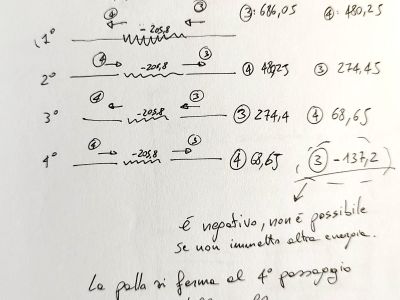 ④ ③ ③: 686,05 ④: 480,25
1° -205,8
④ ③
2° -205,8 ④ 480,25 ③ 274,45
④ ③
3° -205,8 ③ 274,4 ④ 68,65
④ ③
4° -205,8 ④ 68,65 (③ -137,2)
é negativo, non é possibile
se non immetto altra energia.
La palla si ferma al 4° passaggio